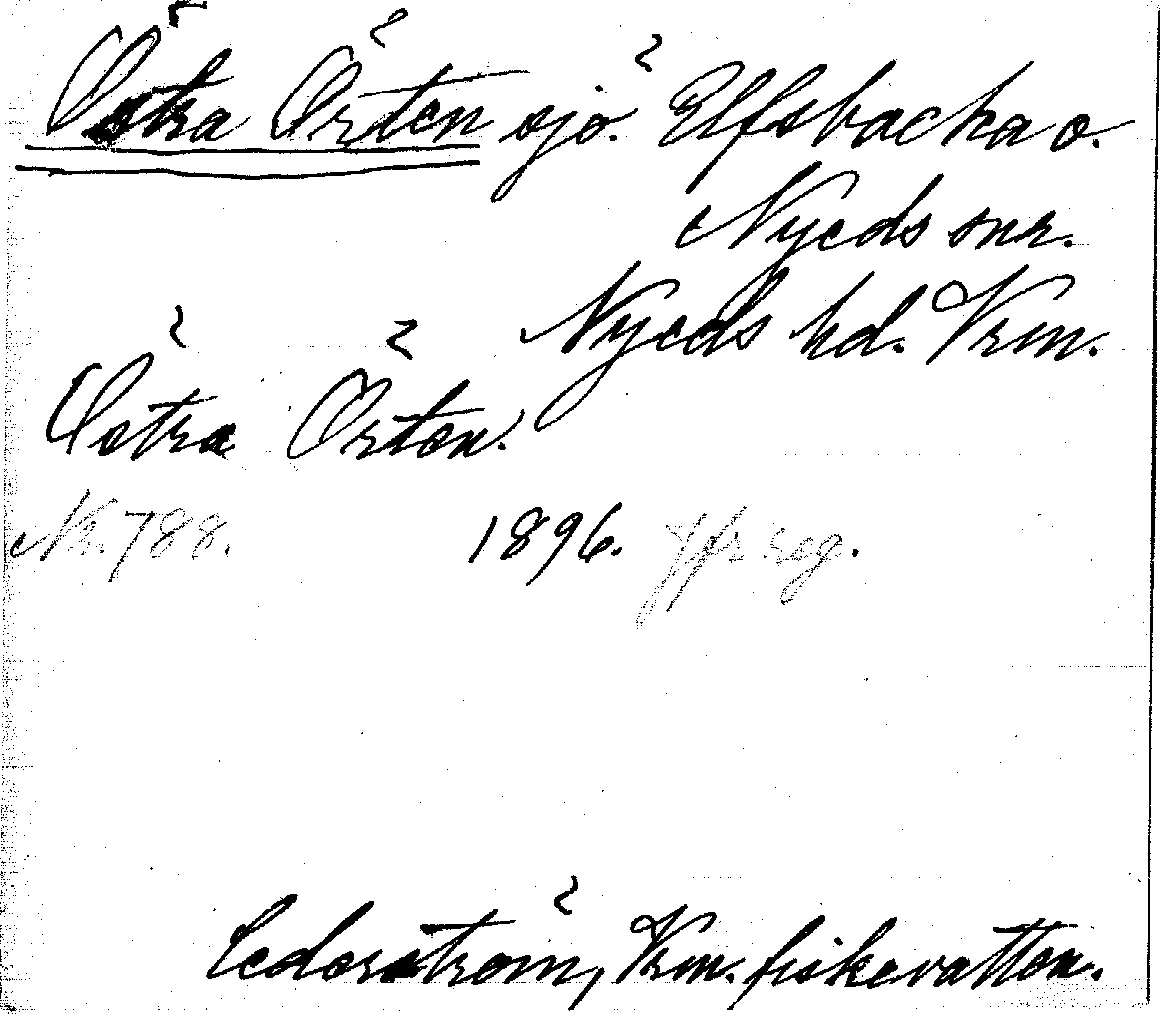 Östra Örten sjö. Elfsbacka o.
Nyeds snr.
Nyeds hd. Vrm.
Östra Örten.
Nr. 788. 1896. Jfr reg.
Cederström, Vrm. fiskevatten.